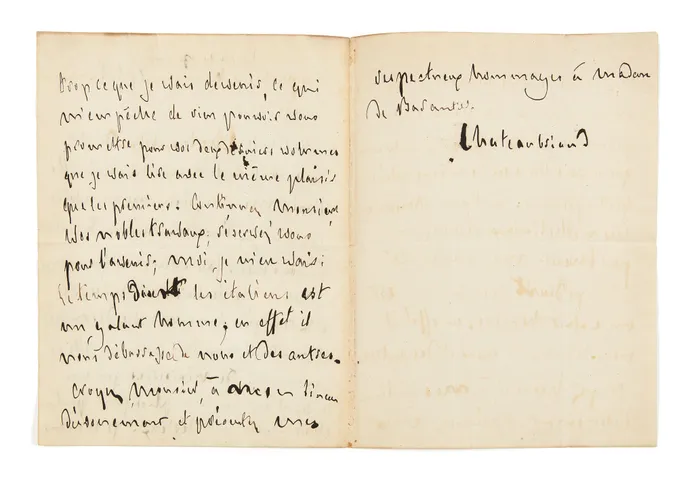 trop ce que je vais devenir, ce qui
m'empêche de rien pouvoir vous
promettre pour vos deux derniers volumes
que je vais lire avec le même plaisir
que les premiers. Continuez, Monsieur,
vos nobles travaux; réservez vous
pour l'avenir; moi, je m'en vais:
le temps disent les italiens est
un galant homme; en effet il
nous débarrasse de nous et des autres.
croyez, Monsieur, à mon sincère
dévouement et présentez mes
respectueux hommages à madame
de Barante.
Chateaubriand